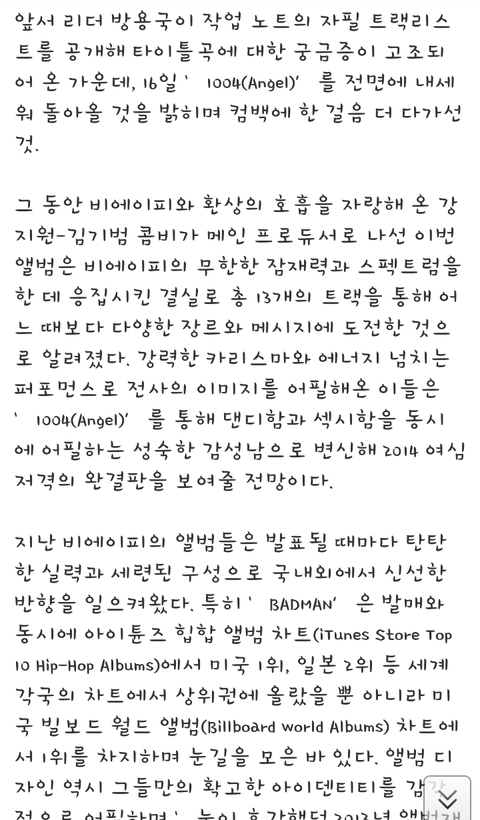 앞서 리더 방용국이 작업 노트의 자필 트랙리스
트를 공개해 타이틀곡에 대한 궁금증이 고조되
어 온 가운데, 16일 ‘ 1004(Angel)’ 를 전면에 내세
워 돌아올 것을 밝히며 컴백에 한 걸음 더 다가선
것.
그 동안 비에이피와 환상의 호흡을 자랑해 온 강
지원-김기범 콤비가 메인 프로듀서로 나선 이번
앨범은 비에이피의 무한한 잠재력과 스펙트럼을
한 데 응집시킨 결실로 총 13개의 트랙을 통해 어
느 때보다 다양한 장르와 메시지에 도전한 것으
로 알려졌다. 강력한 카리스마와 에너지 넘치는
퍼포먼스로 전사의 이미지를 어필해온 이들은
‘ 1004(Angel)’ 를 통해 댄디함과 섹시함을 동시
에 어필하는 성숙한 감성남으로 변신해 2014 여심
저격의 완결판을 보여줄 전망이다.
지난 비에이피의 앨범들은 발표될 때마다 탄탄
한 실력과 세련된 구성으로 국내외에서 신선한
반향을 일으켜왔다. 특히 ‘ BADMAN’ 은 발매와
동시에 아이튠즈 힙합 앨범 차트(iTunes Store Top
10 Hip-Hop Albums)에서 미국 1위, 일본 2위 등 세계
각국의 차트에서 상위권에 올랐을 뿐 아니라 미
국 빌보드 월드 앨범(Billboard World Albums) 차트에
서 1위를 차지하며 눈길을 모은 바 있다. 앨범 디
자인 역시 그들만의 확고한 아이덴티티를 감각
적으로 어필하며 ‘ 눈이 호강했던 2013년 앨범재